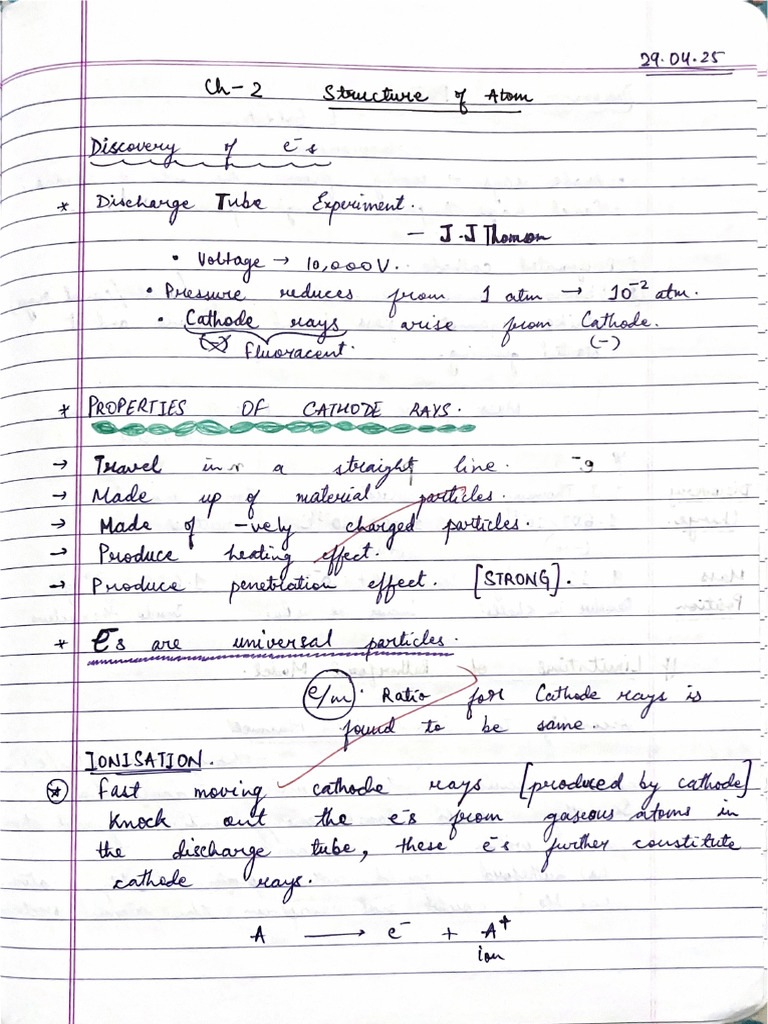 29.04.25
Ch-2 Structure of Atom
Discovery of e⁻s
* Discharge Tube Experiment.
- J.J Thomson
• Voltage → 10,000V.
• Pressure reduces from 1 atm → 10⁻² atm.
• Cathode rays arise from Cathode.
fluoracent. (-)
* PROPERTIES OF CATHODE RAYS.
→ Travel in a straight line.
→ Made up of material particles.
→ Made of -vely charged particles.
→ Produce heating effect.
→ Produce penetration effect. [STRONG].
* e⁻s are universal particles.
e/m. Ratio for Cathode rays is
found to be same.
IONISATION.
* Fast moving cathode rays [produced by cathode]
Knock out the e⁻s from gaseous atoms in
the discharge tube, these e⁻s further constitute
cathode rays.
A → e⁻ + A⁺
ion